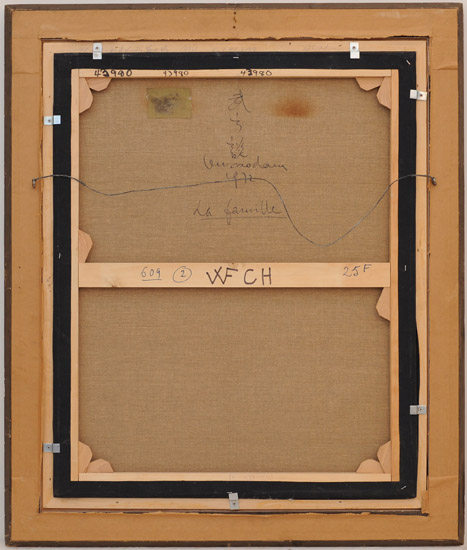 43980 43980 43980
武
高
談
Vu cao dam
1972
La famille
609 2 WFCH 25F